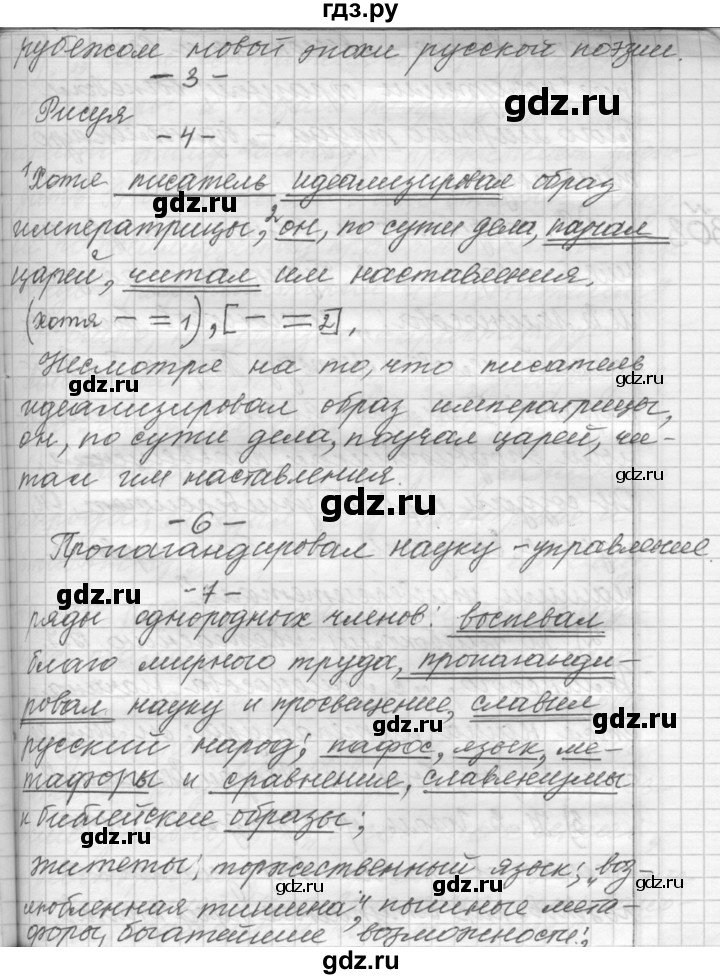 гдз.ру
рубежом новой эпохи русской поэзии.
- 3 -
gdz.ru
Рисуя
- 4 -
¹Хотя писатель идеализировал образ
gdz.ru
gdz.ru
императрицы, ²он, по сути дела, поучал
царей, читал им наставления.
(хотя — = 1), [— = 2].
Несмотря на то, что писатель
gdz.ru
gdz.ru
идеализировал образ императрицы,
он, по сути дела, поучал царей, чи-
тал им наставления.
gdz.ru
- 6 -
Пропагандировал науку - управление.
gdz.ru
- 7 -
ряды однородных членов: воспевал
благо мирного труда, пропаганди-
ровал науку и просвещение, славил
gdz.ru
gdz.ru
русский народ; пафос, язык, ме-
тафоры и сравнения, славянизмы
и библейские образы;
gdz.ru
gdz.ru
эпитеты; торжественный язык; "воз-
gdz.ru
gdz.ru
любленная тишина", пышные мета-
форы, богатейшие возможности;
gdz.ru